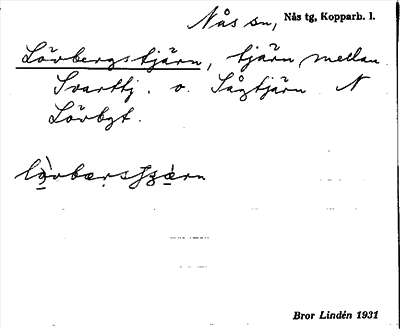 Nås sn, Nås tg, Kopparb. l.
Lövbergstjärn, tjärn mellan
Svarttj. o. Sågtjärn N
Lövbgt.
Bror Lindén 1931